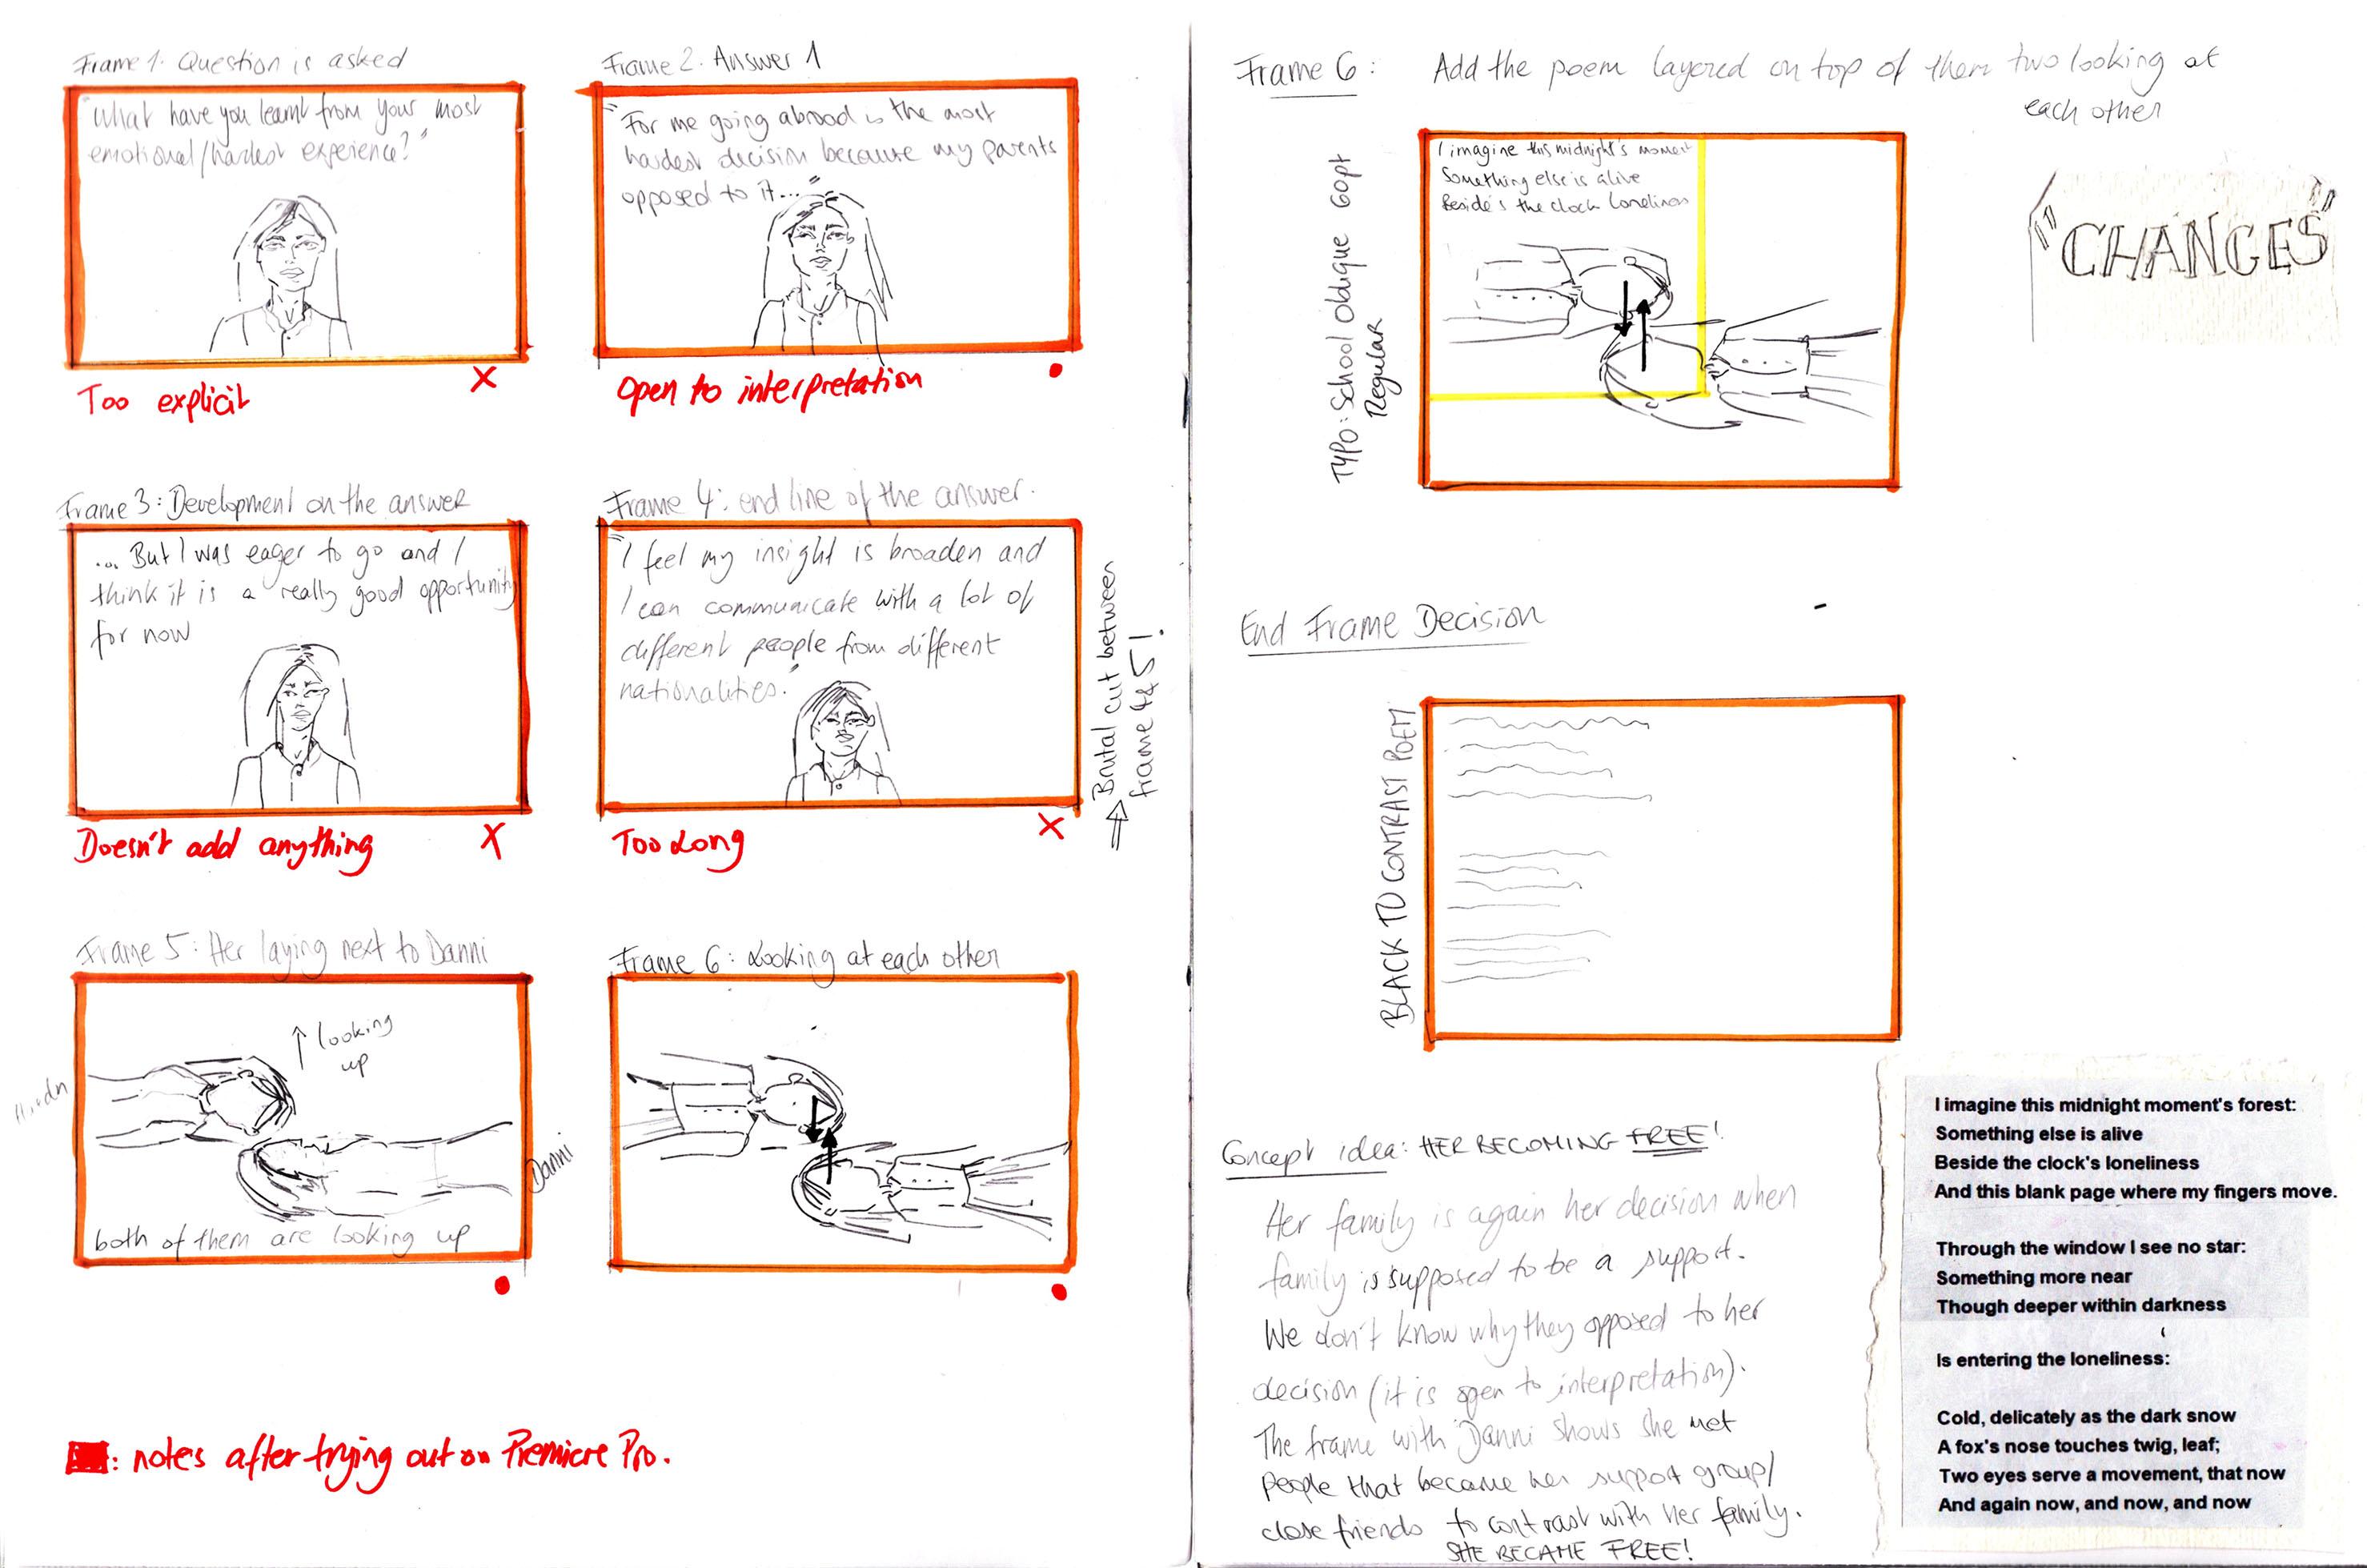 Frame 1. Question is asked
"What have you learnt from your most
emotional/hardest experience?"
Too explicit X
Frame 2. Answer 1
"For me going abroad is the most
hardest decision because my parents
opposed to it..."
Open to interpretation
Frame 3: Development on the answer
... But I was eager to go and I
think it is a really good opportunity
for now
Doesn't add anything X
Frame 4: end line of the answer.
"I feel my insight is broaden and
I can communicate with a lot of
different people from different
nationalities."
Too Long X
⇒ Brutal cut between
frame 4&5!
Frame 5: Her laying next to Danni
↑ looking
up
Danni
both of them are looking up
Frame 6: Looking at each other
: notes after trying out on Premiere Pro.
Frame 6: Add the poem layered on top of them two looking at
each other
TYPO: School Oblique 60pt
Regular
I imagine this midnight's moment
Something else is alive
Beside's the clock loneliness
"CHANGES"
End Frame Decision
BLACK TO CONTRAST POEM
Concept idea: HER BECOMING FREE!
Her family is again her decision when
family is supposed to be a support.
We don't know why they opposed to her
decision (it is open to interpretation).
The frame with Danni shows she met
People that became her support group/
close friends to contrast with her family.
SHE BECAME FREE!
I imagine this midnight moment's forest:
Something else is alive
Beside the clock's loneliness
And this blank page where my fingers move.
Through the window I see no star:
Something more near
Though deeper within darkness
Is entering the loneliness:
Cold, delicately as the dark snow
A fox's nose touches twig, leaf;
Two eyes serve a movement, that now
And again now, and now, and now